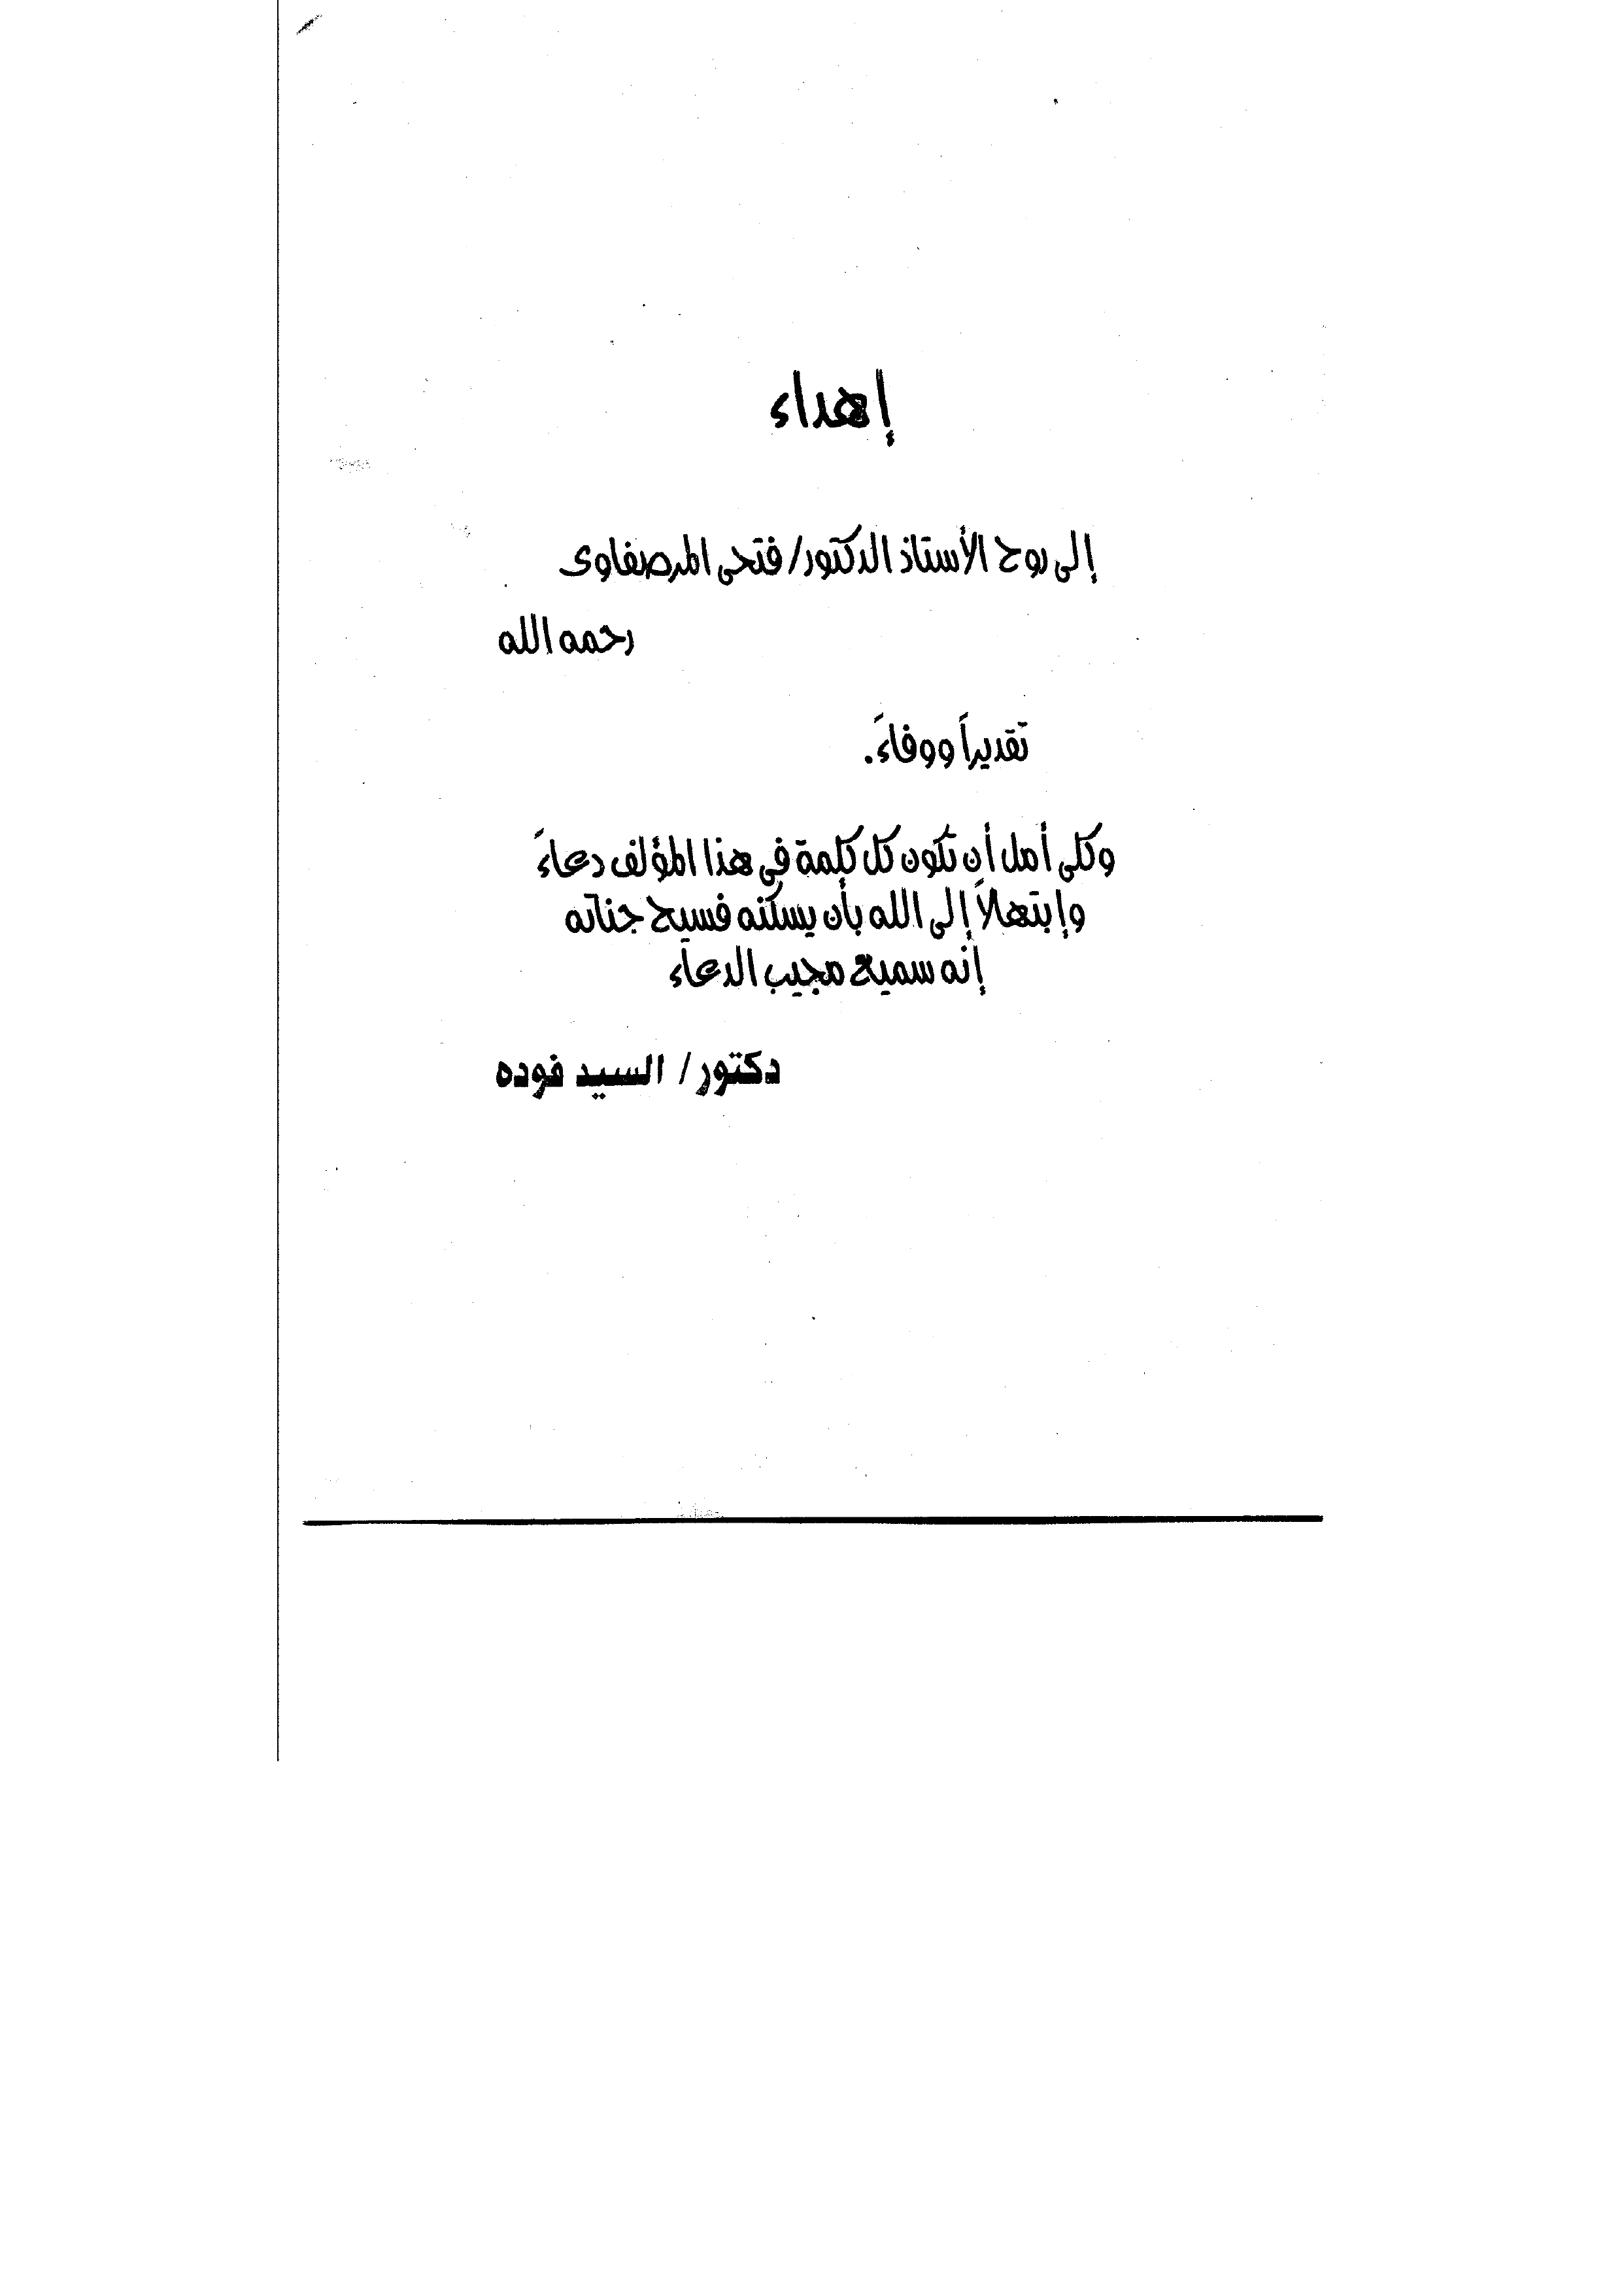 إهداء
إلى روح الأستاذ الدكتور/ فتحى المرصفاوى
رحمه الله
تقديراً ووفاءً.
وكلى أمل أن تكون كل كلمة فى هذا المؤلف دعاءً
وإبتهالاً إلى الله بأن يسكنه فسيح جناته
إنه سميع مجيب الدعاء
دكتور/ السيد فوده